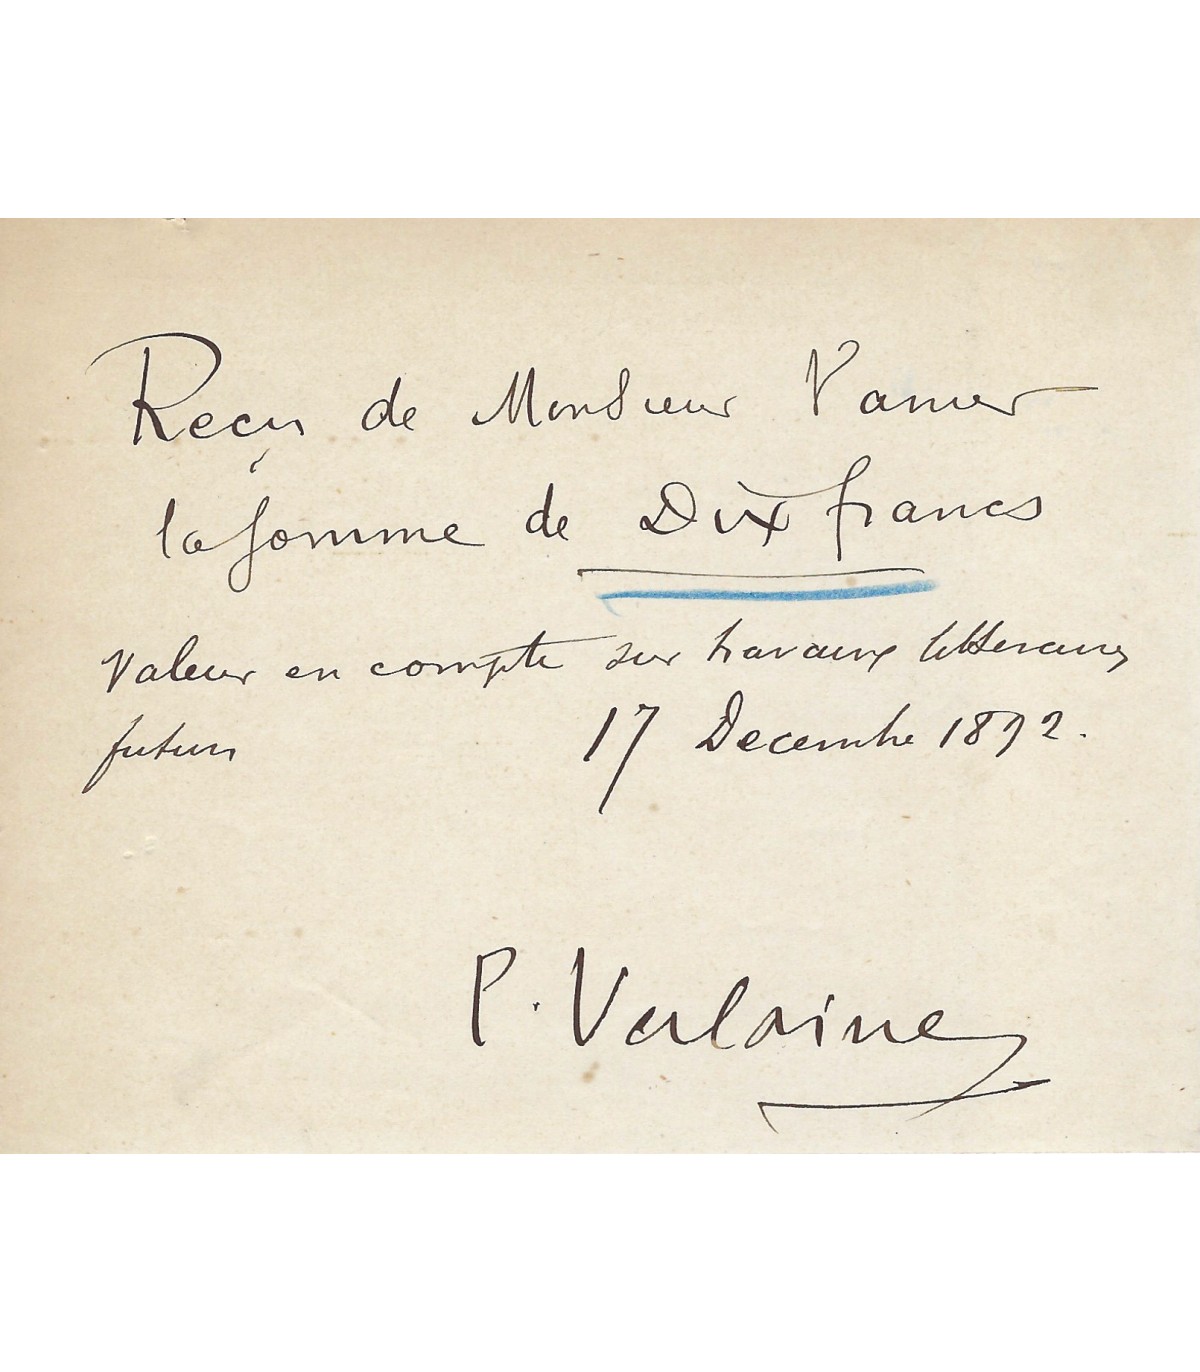 Reçu de Monsieur Vanier
la somme de Dix francs
valeur en compte sur travaux littéraires
futurs 17 Décembre 1892.
P. Verlaine